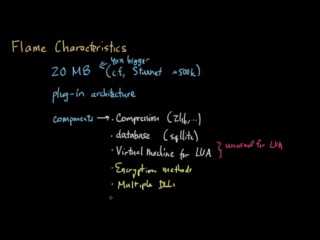 Flame Characteristics
40x bigger
20 MB (cf, Stuxnet ~500k)
plug-in architecture
components → • Compression (zlib, ...)
• database (sqllite)
• Virtual Machine for LUA } unusual for LUA
• Encryption methods
• Multiple DLLs